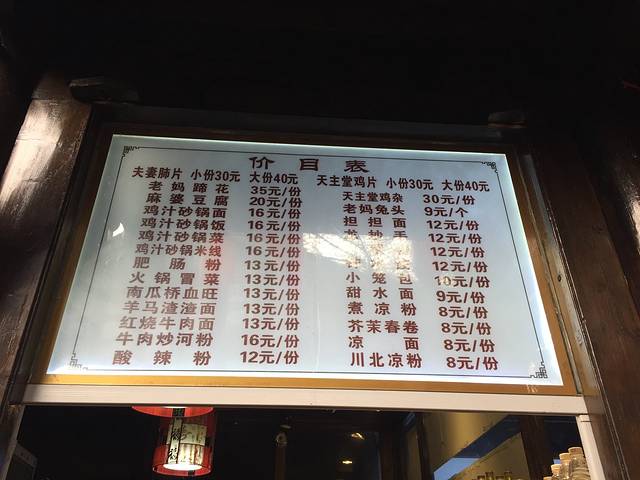 价目表
夫妻肺片 小份30元 大份40元
老妈蹄花 35元/份
麻婆豆腐 20元/份
鸡汁砂锅面 16元/份
鸡汁砂锅饭 16元/份
鸡汁砂锅菜 16元/份
鸡汁砂锅米线 16元/份
肥肠粉 13元/份
火锅冒菜 13元/份
南瓜桥血旺 13元/份
羊马渣渣面 13元/份
红烧牛肉面 13元/份
牛肉炒河粉 16元/份
酸辣粉 12元/份
天主堂鸡片 小份30元 大份40元
天主堂鸡杂 30元/份
老妈兔头 9元/个
担担面 12元/份
12元/份
12元/份
12元/份
小笼包 10元/份
甜水面 9元/份
煮凉粉 8元/份
芥茉春卷 8元/份
凉面 8元/份
川北凉粉 8元/份